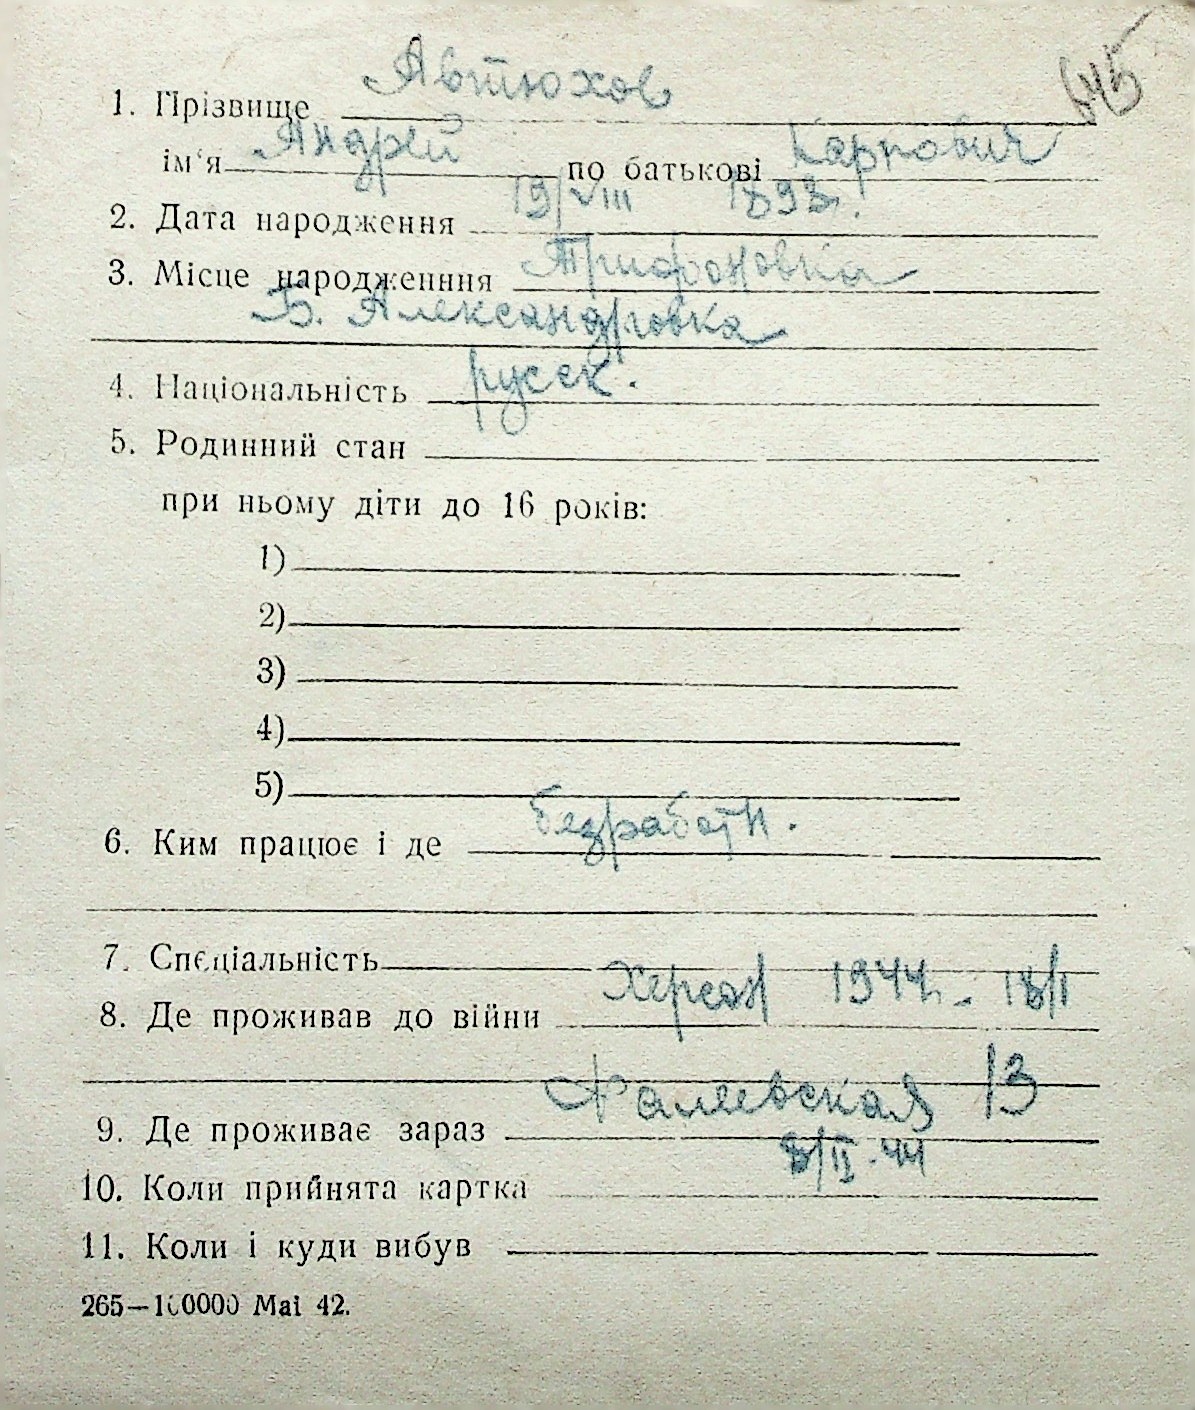 645
Автюхов
1. Прізвище
Андрей Карпович
ім'я по батькові
19/VIII 1893г.
2. Дата народження
Трифоновка
3. Місце народженння
Б. Александровка
русск.
4. Національність
5. Родинний стан
при ньому діти до 16 років:
1)
2)
3)
4)
5)
безработн.
6. Ким працює і де
7. Спеціальність
Херсон 1944г. 18/I
8. Де проживав до війни
Фалеевская 13
9. Де проживає зараз
8/II-44
10. Коли прийнята картка
11. Коли і куди вибув
265—100000 Mai 42.